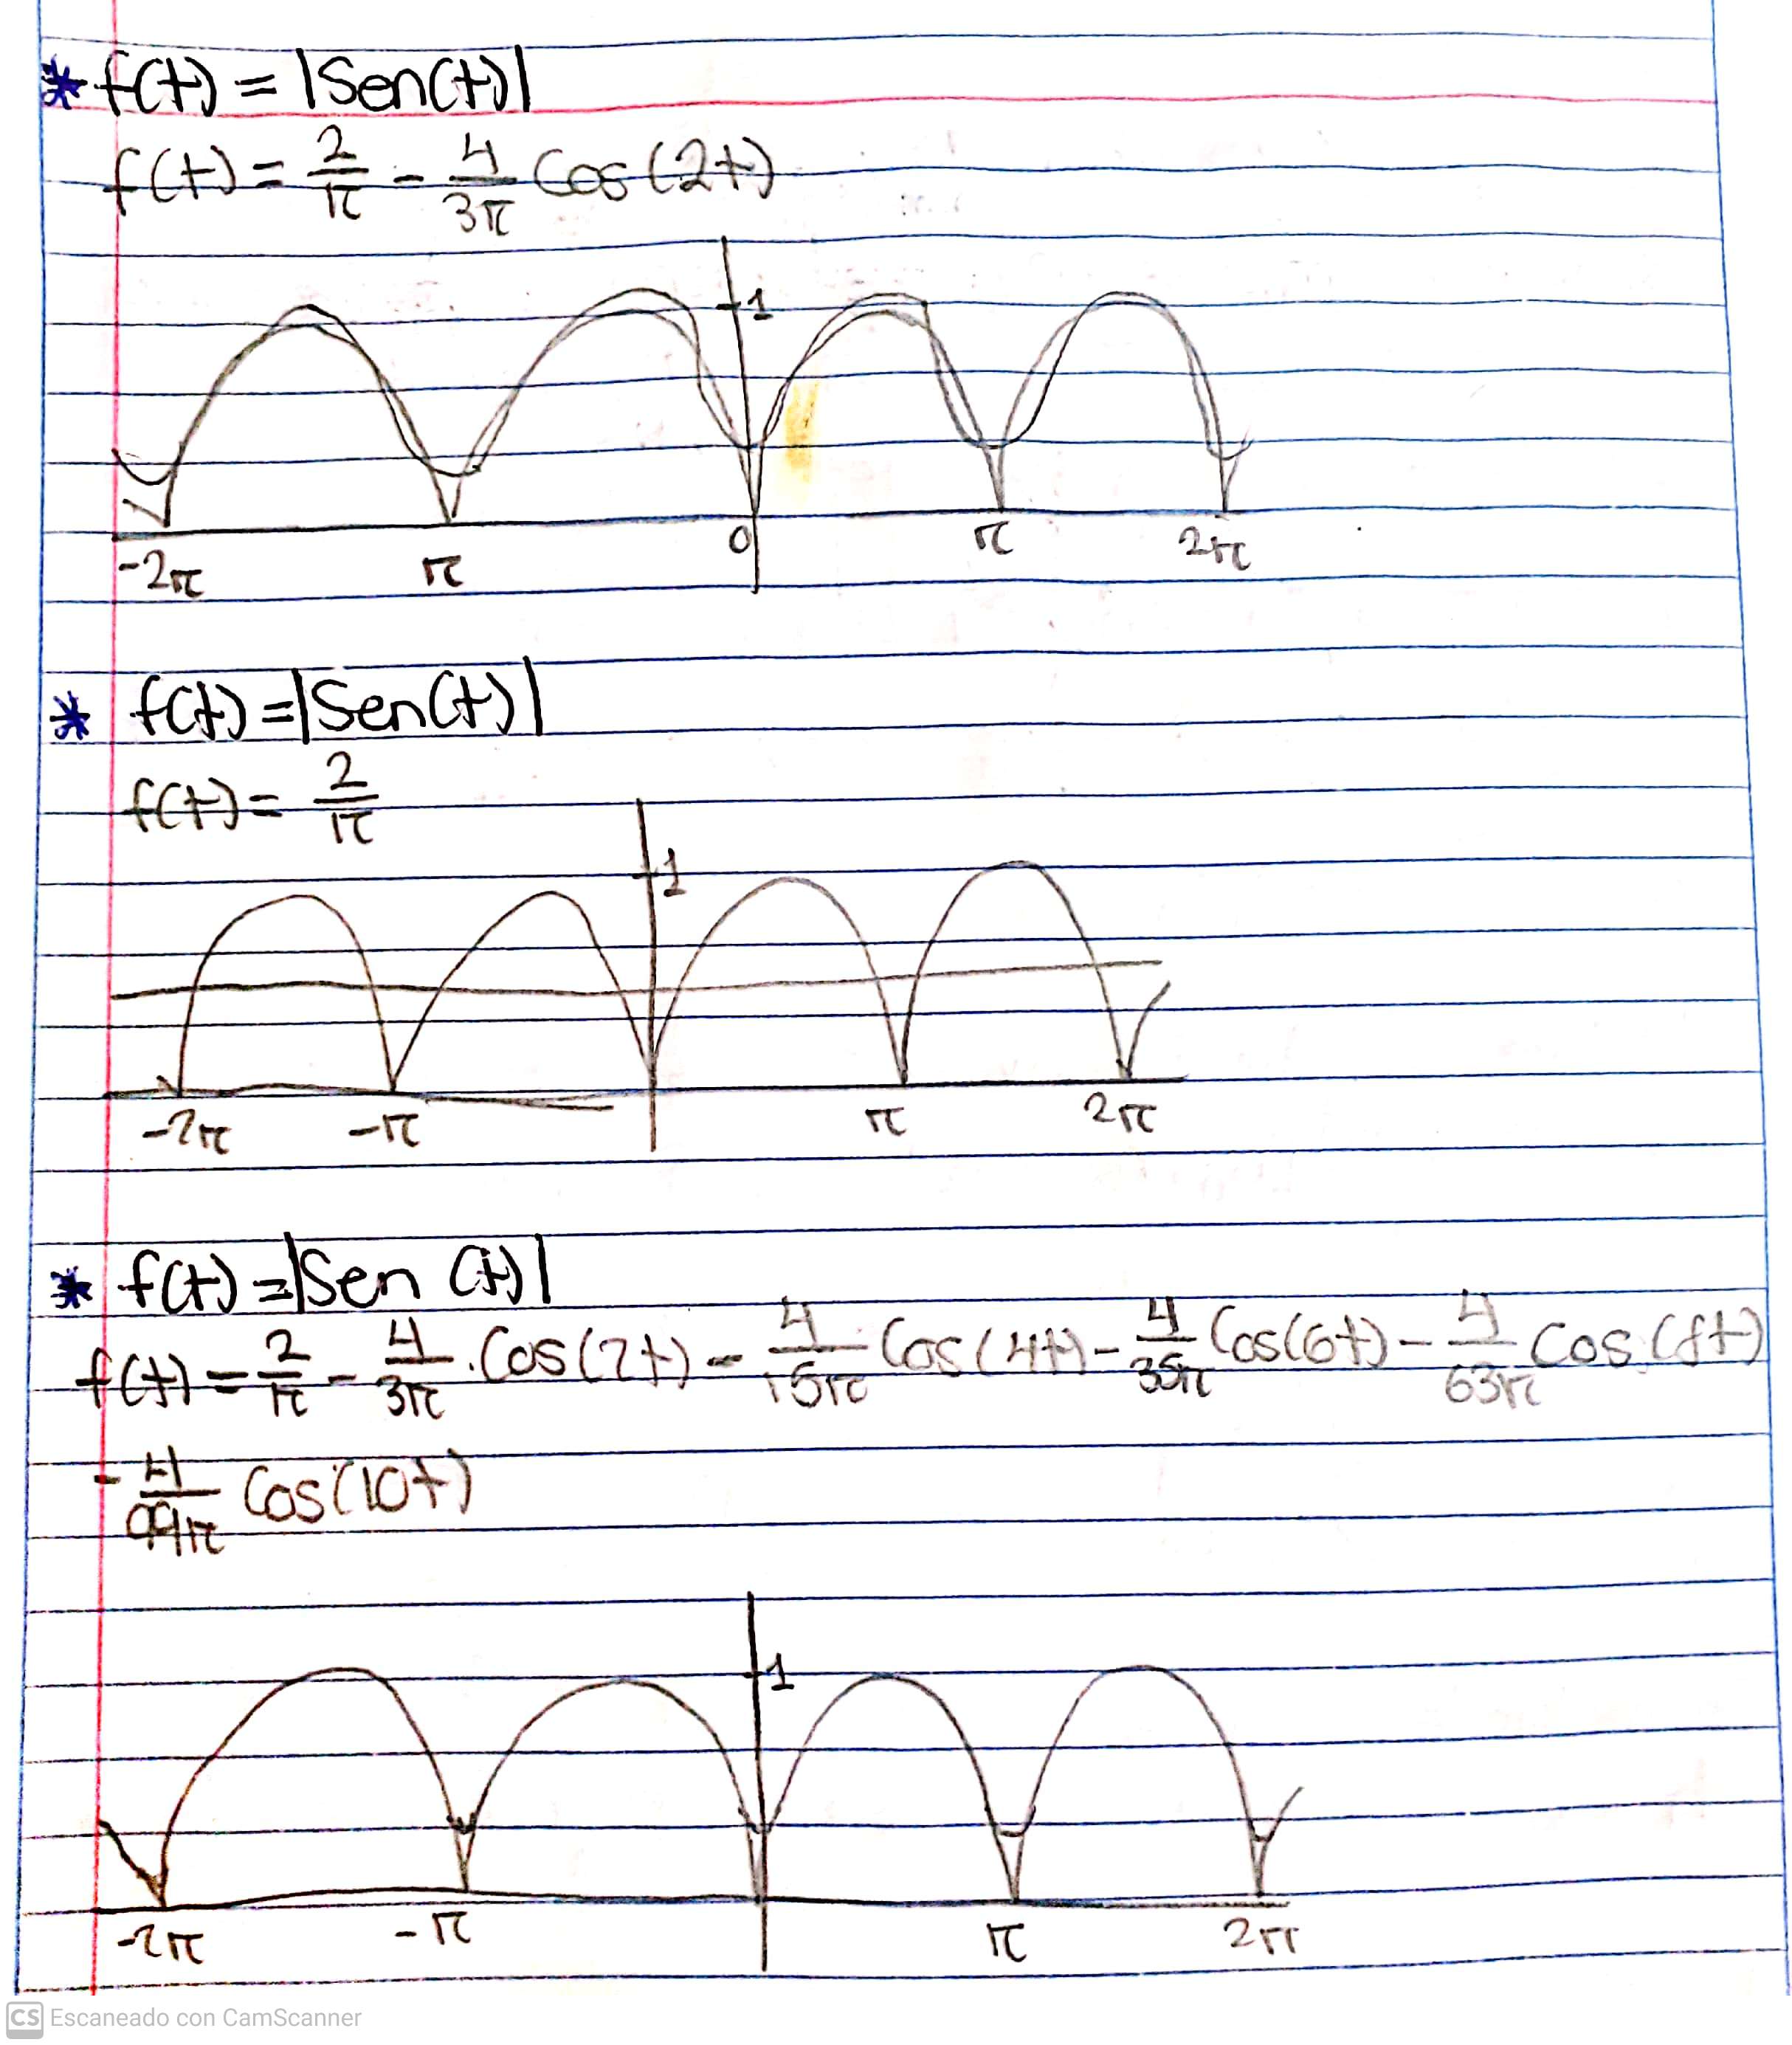 * f(t) = |Sen(t)|
f(t) = 2/π - 4/3π Cos(2t)
1
-2π π 0 π 2π
* f(t) = |Sen(t)|
f(t) = 2/π
1
-2π -π π 2π
* f(t) = |Sen (t)|
f(t) = 2/π - 4/3π . Cos(2t) - 4/15π Cos(4t) - 4/35π Cos(6t) - 4/63π Cos(8t)
- 4/99π Cos(10t)
1
-2π -π π 2π
CS Escaneado con CamScanner